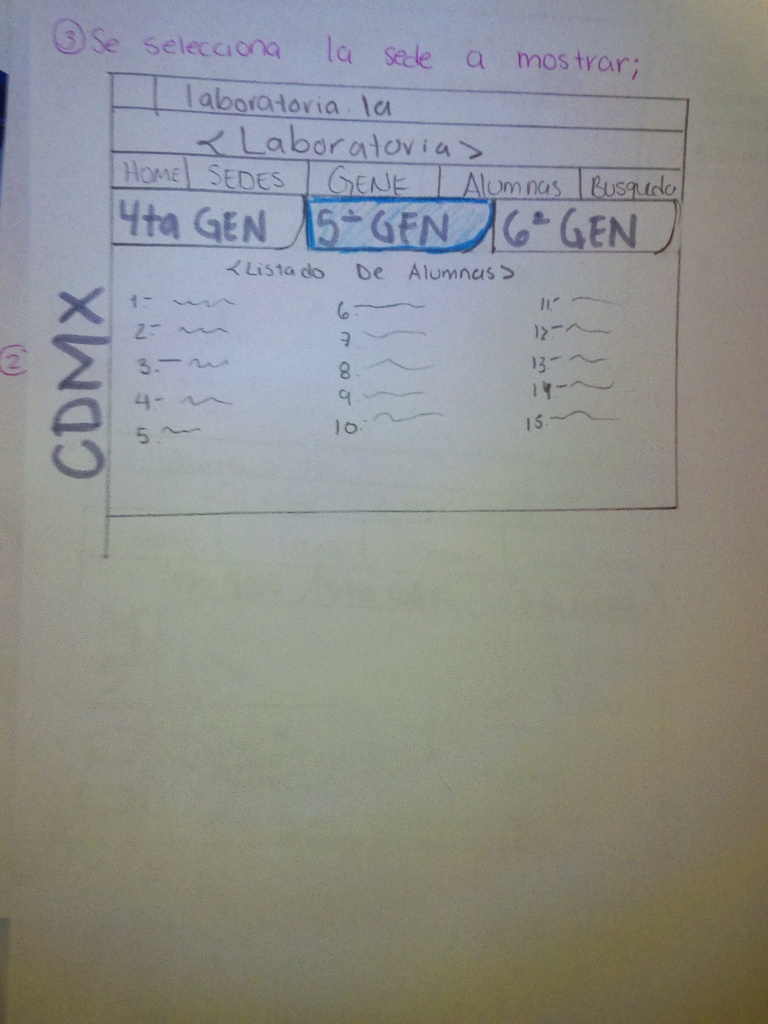 ③ Se selecciona la sede a mostrar;
laboratoria.la
<Laboratoria>
HOME SEDES GENE Alumnas Busqueda
4ta GEN 5ª GEN 6ª GEN
<Listado De Alumnas>
1- 6. 11.-
2.- 7 12-
3.- 8. 13-
4- 9 14-
5. 10. 15.
CDMX
②